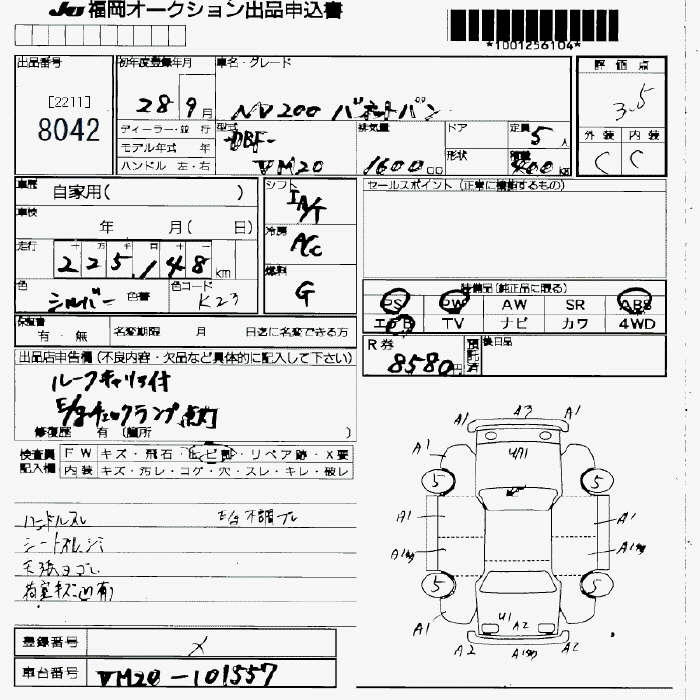 JU 福岡オークション出品申込書
*1001256104*
出品番号 初年度登録年月 車名・グレード 評価点
[2211]
8042
28 9月 NV200 バネットバン 3.5
ディーラー・並行 型式 DBF- 排気量 ドア 定員 5人 外装 内装
モデル年式 年
ハンドル 左・右 VM20 1600cc 形状 積載 400kg C C
車歴 自家用( ) シフト IA/T セールスポイント (正常に機能するもの)
車検 年 月( 日) 冷房 A/C
走行 十 万 千 百 十
225,148km 燃料 G
色 シルバー 色替 色コード K23
装備品(純正品に限る)
PS PW AW SR ABS
エアB TV ナビ カワ 4WD
保証書 有・無 名変期限 月 日迄に名変できる方
R券 8580円 預託済 後日品
出品店申告欄(不良内容・欠品など具体的に記入して下さい)
ルーフキャリア付
E/gチェックランプ点灯
修復歴 有 (箇所 )
検査員記入欄 FW キズ・飛石・ヒビ割・リペア跡・X要
内装 キズ・汚レ・コゲ・穴・スレ・キレ・破レ
ハンドルスレ E/g不調
シートスレ
天張ヨゴレ
荷室キズ凹有
A1 A3 A1
A1 UA1 A1
5 5
A1 A1
A1 A1
5 5
A1 U1 A2 A1
A2 A2
登録番号 メ
車台番号 VM20-101557